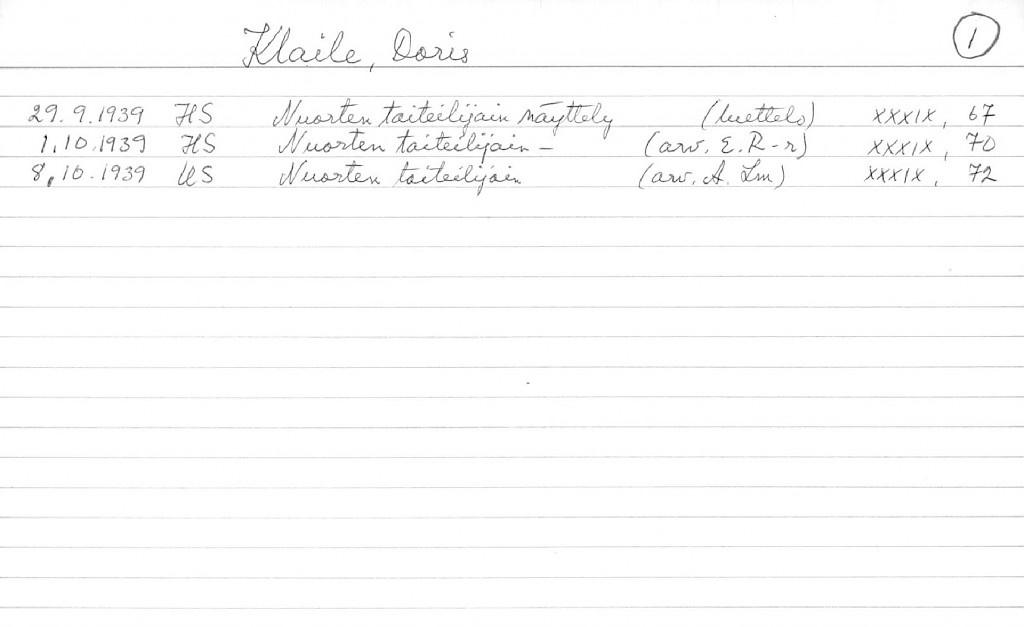 Klaile, Doris 1
29. 9. 1939 HS Nuorten taiteilijain näyttely (luettelo) XXXIX, 67
1. 10. 1939 HS Nuorten taiteilijain – (arv. E. R-r) XXXIX, 70
8. 10. 1939 US Nuorten taiteilijain (arv. A. Lm) XXXIX, 72